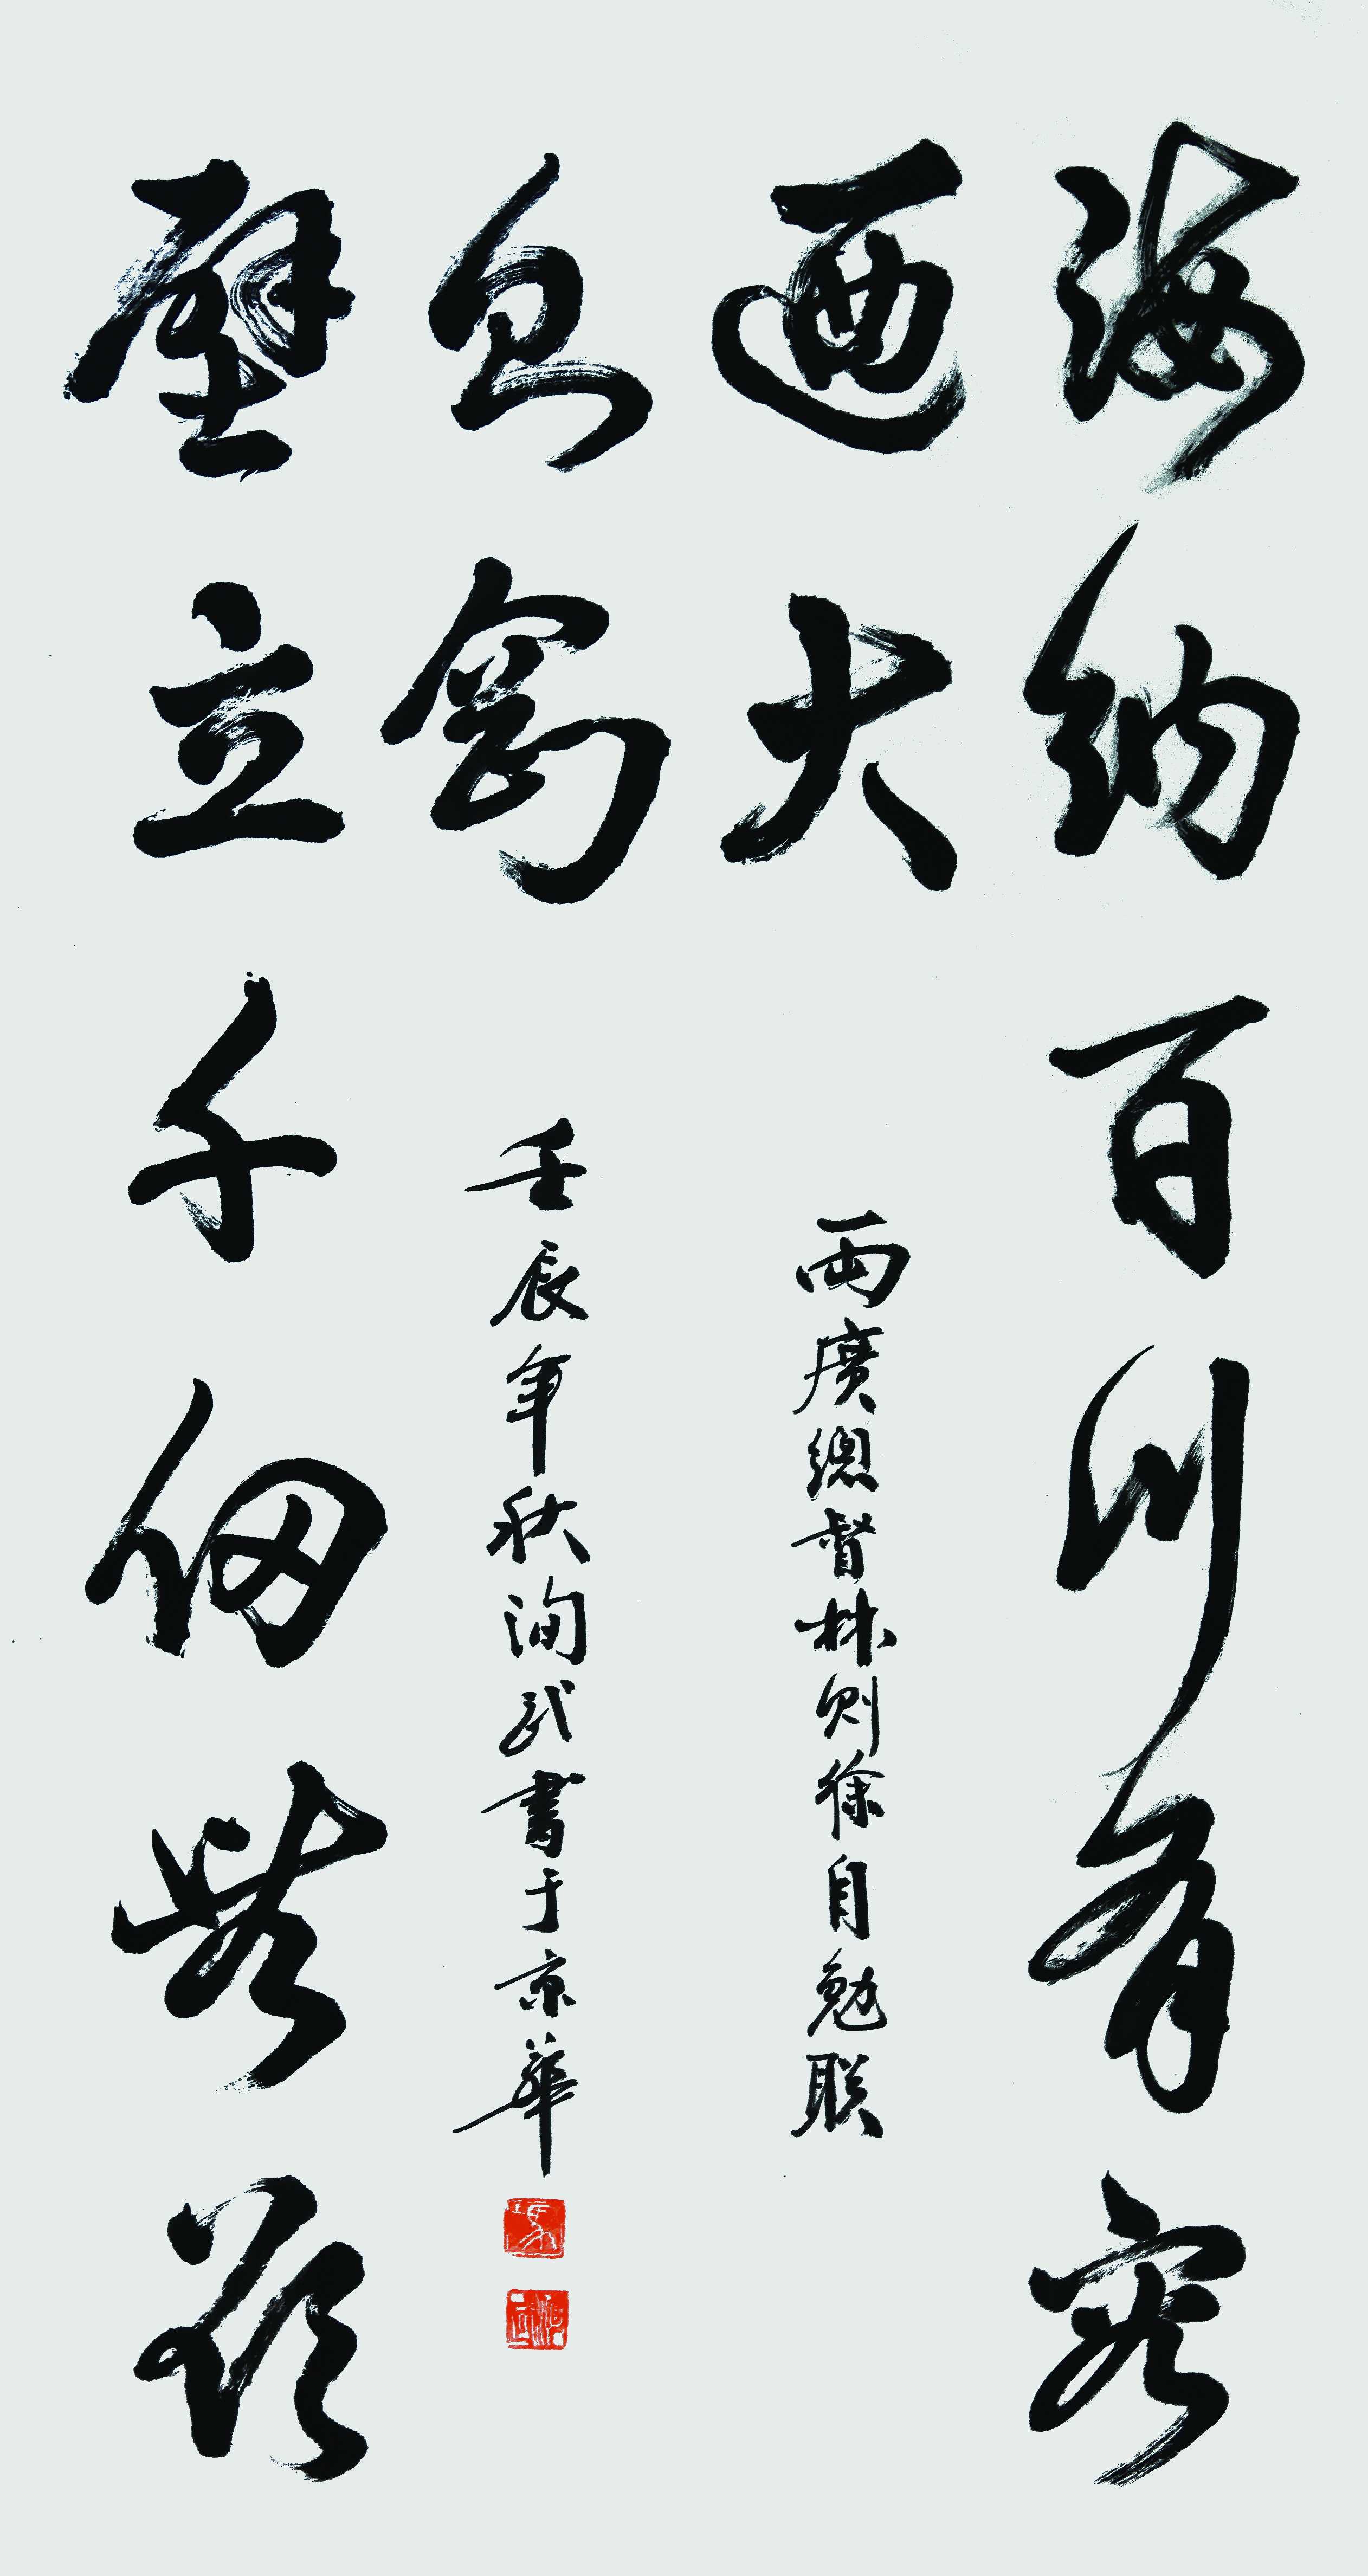 海納百川有容
迺大
兩廣總督林則徐自勉联
壁立千仞無欲
則剛
壬辰年秋洵武書于京華